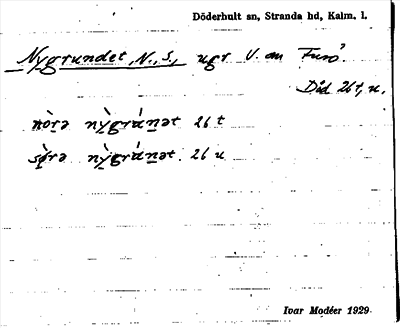 Döderhult sn, Stranda hd, Kalm. l.
Nygrundet, N., S., ugr V. om Furö.
Död 26t, u.
nò̱rə nỳ̱grána̱t 26 t
sø̱̀rə nỳ̱grána̱t. 26 u
Ivar Modéer 1929